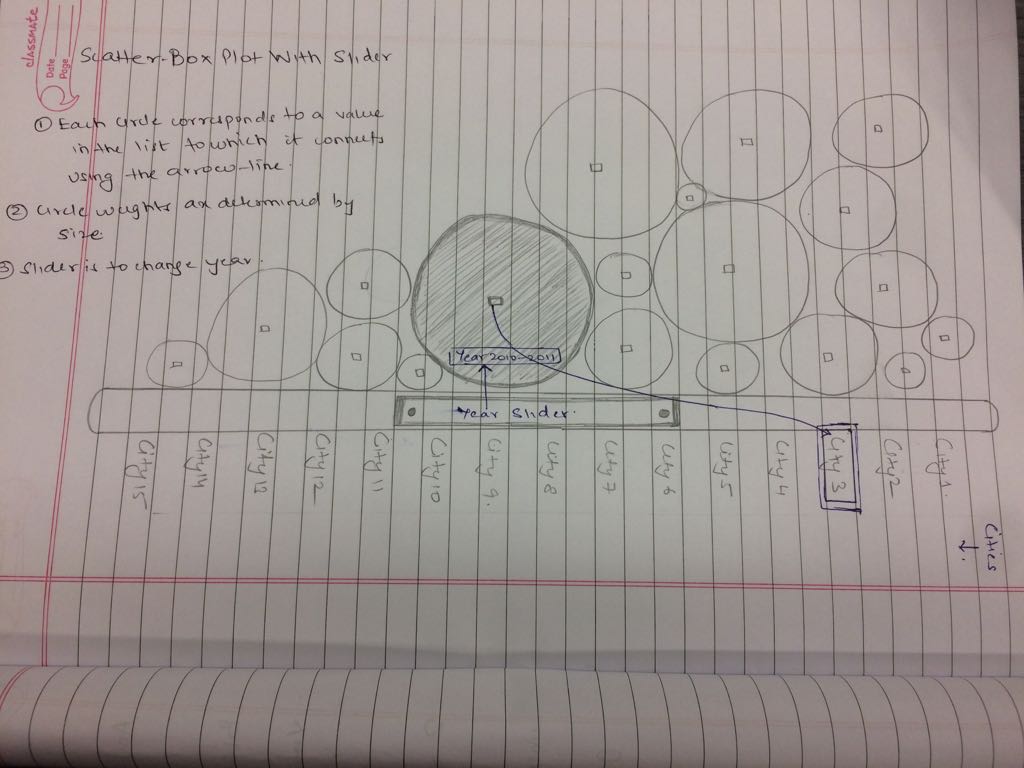 classmate
Date
Page
Scatter-Box Plot With Slider
① Each circle corresponds to a value
in the list to which it connects
using the arrow-line.
② Circle weights are determined by
size.
③ Slider is to change year.
Year 2010-2011
Year Slider.
City 15
City 14
City 13
City 12
City 11
City 10
City 9.
City 8
City 7
City 6
City 5
City 4
City 3
City 2
City 1.
Cities